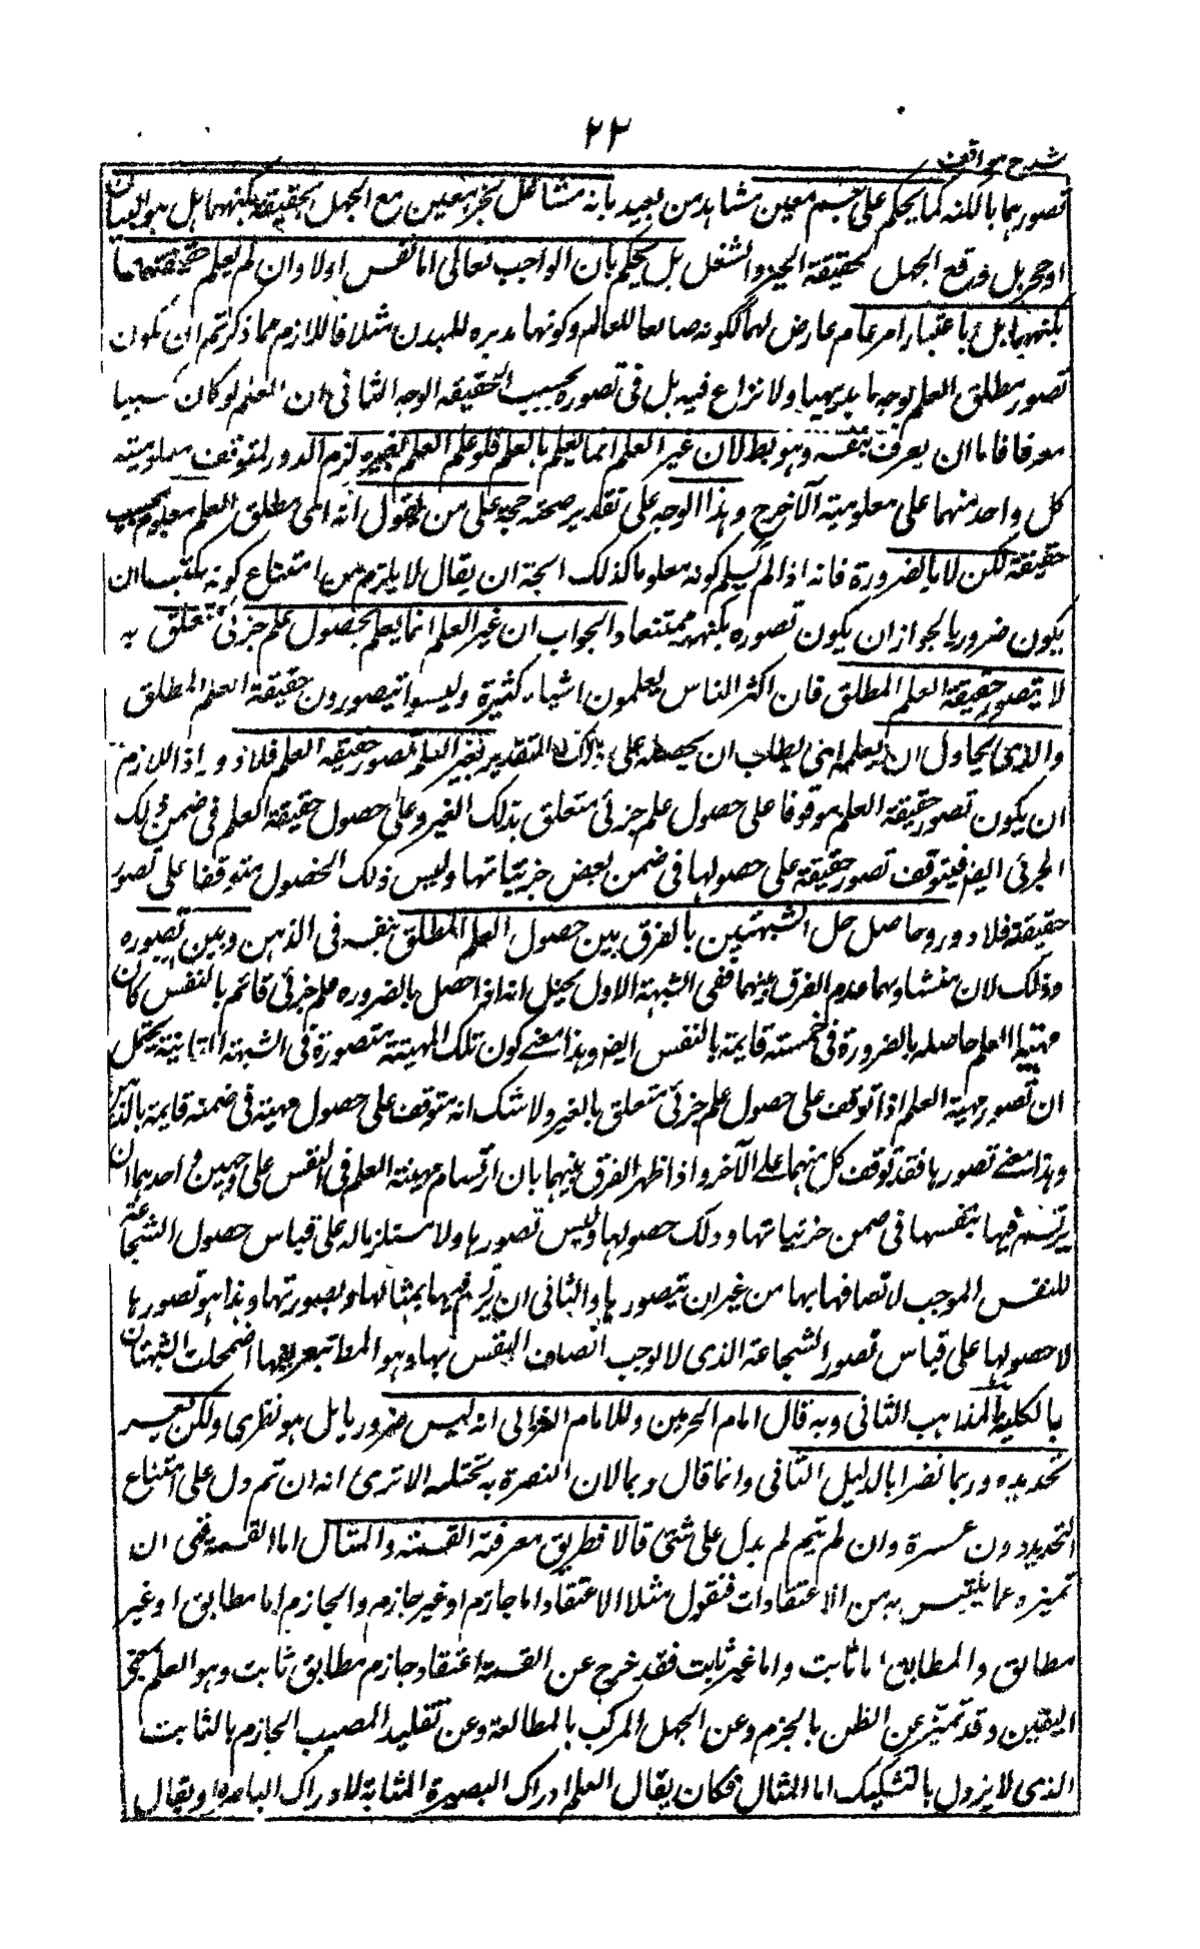 ٢٢
شرح مواقف
تصورهما بالكنه كما يحكم على جسم معين مشاهد من بعيد بانه شاغل لحيز معين مع الجهل بحقيقته بكنهها هل هو انسان
او حجر بل و مع الجهل بحقيقة الحيز والشغل بل يحكم بان الواجب تعالى اما نفس اولا وان لم يعلم حقيقتهما
بكنهها بل باعتبار امر عام عارض لهما ككونه صانعا للعالم وكونها مدبره للبدن مثلا فاللازم مما ذكرتم ان يكون
تصور مطلق العلم بوجه ما بديهيا ولا نزاع فيه بل في تصوره بحسب الحقيقه الوجه الثاني ان العلم لو كان كسبيا
معرفا فاما ان يعرف بنفسه وهو بط لان غير العلم انما يعلم بالعلم فلو علم العلم بغيره لزم الدور لتوقف معلومية
كل واحد منهما على معلومية الآخر ح وهذا الوجه على تقدير صحته حجة على من يقول انه اى مطلق العلم معلوم بحسب
حقيقته لكن لا بالضرورة فانه اذا لم يسلم كونه معلوما كذلك اتجه ان يقال لا يلزم من امتناع كونه مكتسبا ان
يكون ضروريا لجواز ان يكون تصوره بكنهه ممتنعا والجواب ان غير العلم انما يعلم بحصول علم جزئى متعلق به
لا بتصور حقيقة العلم المطلق فان اكثر الناس يعلمون اشياء كثيرة وليسوا يتصورون حقيقة العلم المطلق
والذى يحاول ان يعلمه اى يطلب ان يحصله على ذلك التقدير بغير العلم تصور حقيقه العلم فلا دور اذ اللازم
ان يكون تصور حقيقة العلم موقوفا على حصول علم جزئى متعلق بذلك الغير وعلى حصول حقيقة العلم فى ضمن ذلك
الجزئى ايضا فيتوقف تصور حقيقته على حصولها فى ضمن بعض جزئياتها وليس ذلك الحصول متوقفا على تصور
حقيقته فلا دور وحاصل حل الشبهتين بالفرق بين حصول العلم المطلق بنفسه فى الذهن وبين تصوره
وذلك لان منشاوهما عدم الفرق بينهما ففى الشبهة الاولى يخيل انه اذا حصل بالضروره علم جزئى قائم بالنفس كان
مهية العلم حاصله بالضرورة فى ضمنه قايمة بالنفس ايضا وهذا معنى كون تلك المهية متصورة وفى الشبهة الثانية يخيل
ان تصور مهية العلم اذا توقف على حصول علم جزئى متعلق بالغير ولا شك انه متوقف على حصول مهية فى ضمنه قايمة بالذهن
وهذا معنى تصورها فقد توقف كل منهما على الآخر واذا ظهر الفرق بينهما بان ارتسام مهية العلم فى النفس على وجهين احدهما ان
يرتسم فيها بنفسها فى ضمن جزئياتها وذلك حصولها وليس تصورها ولا مستلزما له على قياس حصول الشجاعة
للنفس الموجب لاتصافها بها من غير ان يتصورها والثانى ان يرتسم فيها بمثالها وبصورتها وهذا هو تصورها
لا حصولها على قياس تصور الشجاعة الذى لا يوجب اتصاف النفس بها وهو المط بتعريفها اضمحلت الشبهتان
بالكلية المذاهب الثانى وبه قال امام الحرمين والامام الغزالى انه ليس ضروريا بل هو نظرى ولكن يعسر
تحديده وربما نصرا بالدليل الثانى وانما قال ربما لان النصرة به تختله الا ترى انه ان تم دل على امتناع
التحديد دون عسره وان لم يتم لم يدل على شئ قالا فطريق معرفة القسمة والمثال اما القسمة فهى ان
تميزه عما يلتبس به من الاعتقادات فنقول مثلا الاعتقاد اما جازم او غير جازم والجازم اما مطابق او غير
مطابق والمطابق اما ثابت واما غير ثابت فقد خرج عن القسمة اعتقاد جازم مطابق ثابت وهو العلم بمعنى
اليقين وقد تميز عن الظن بالجزم وعن الجهل المركب بالمطابقة وعن تقليد المصيب الجازم بالثابت
الذى لا يزول بالتشكيك اما المثال فكان يقال العلم ادراك البصيرة المشابة لادراك الباصرة او يقال